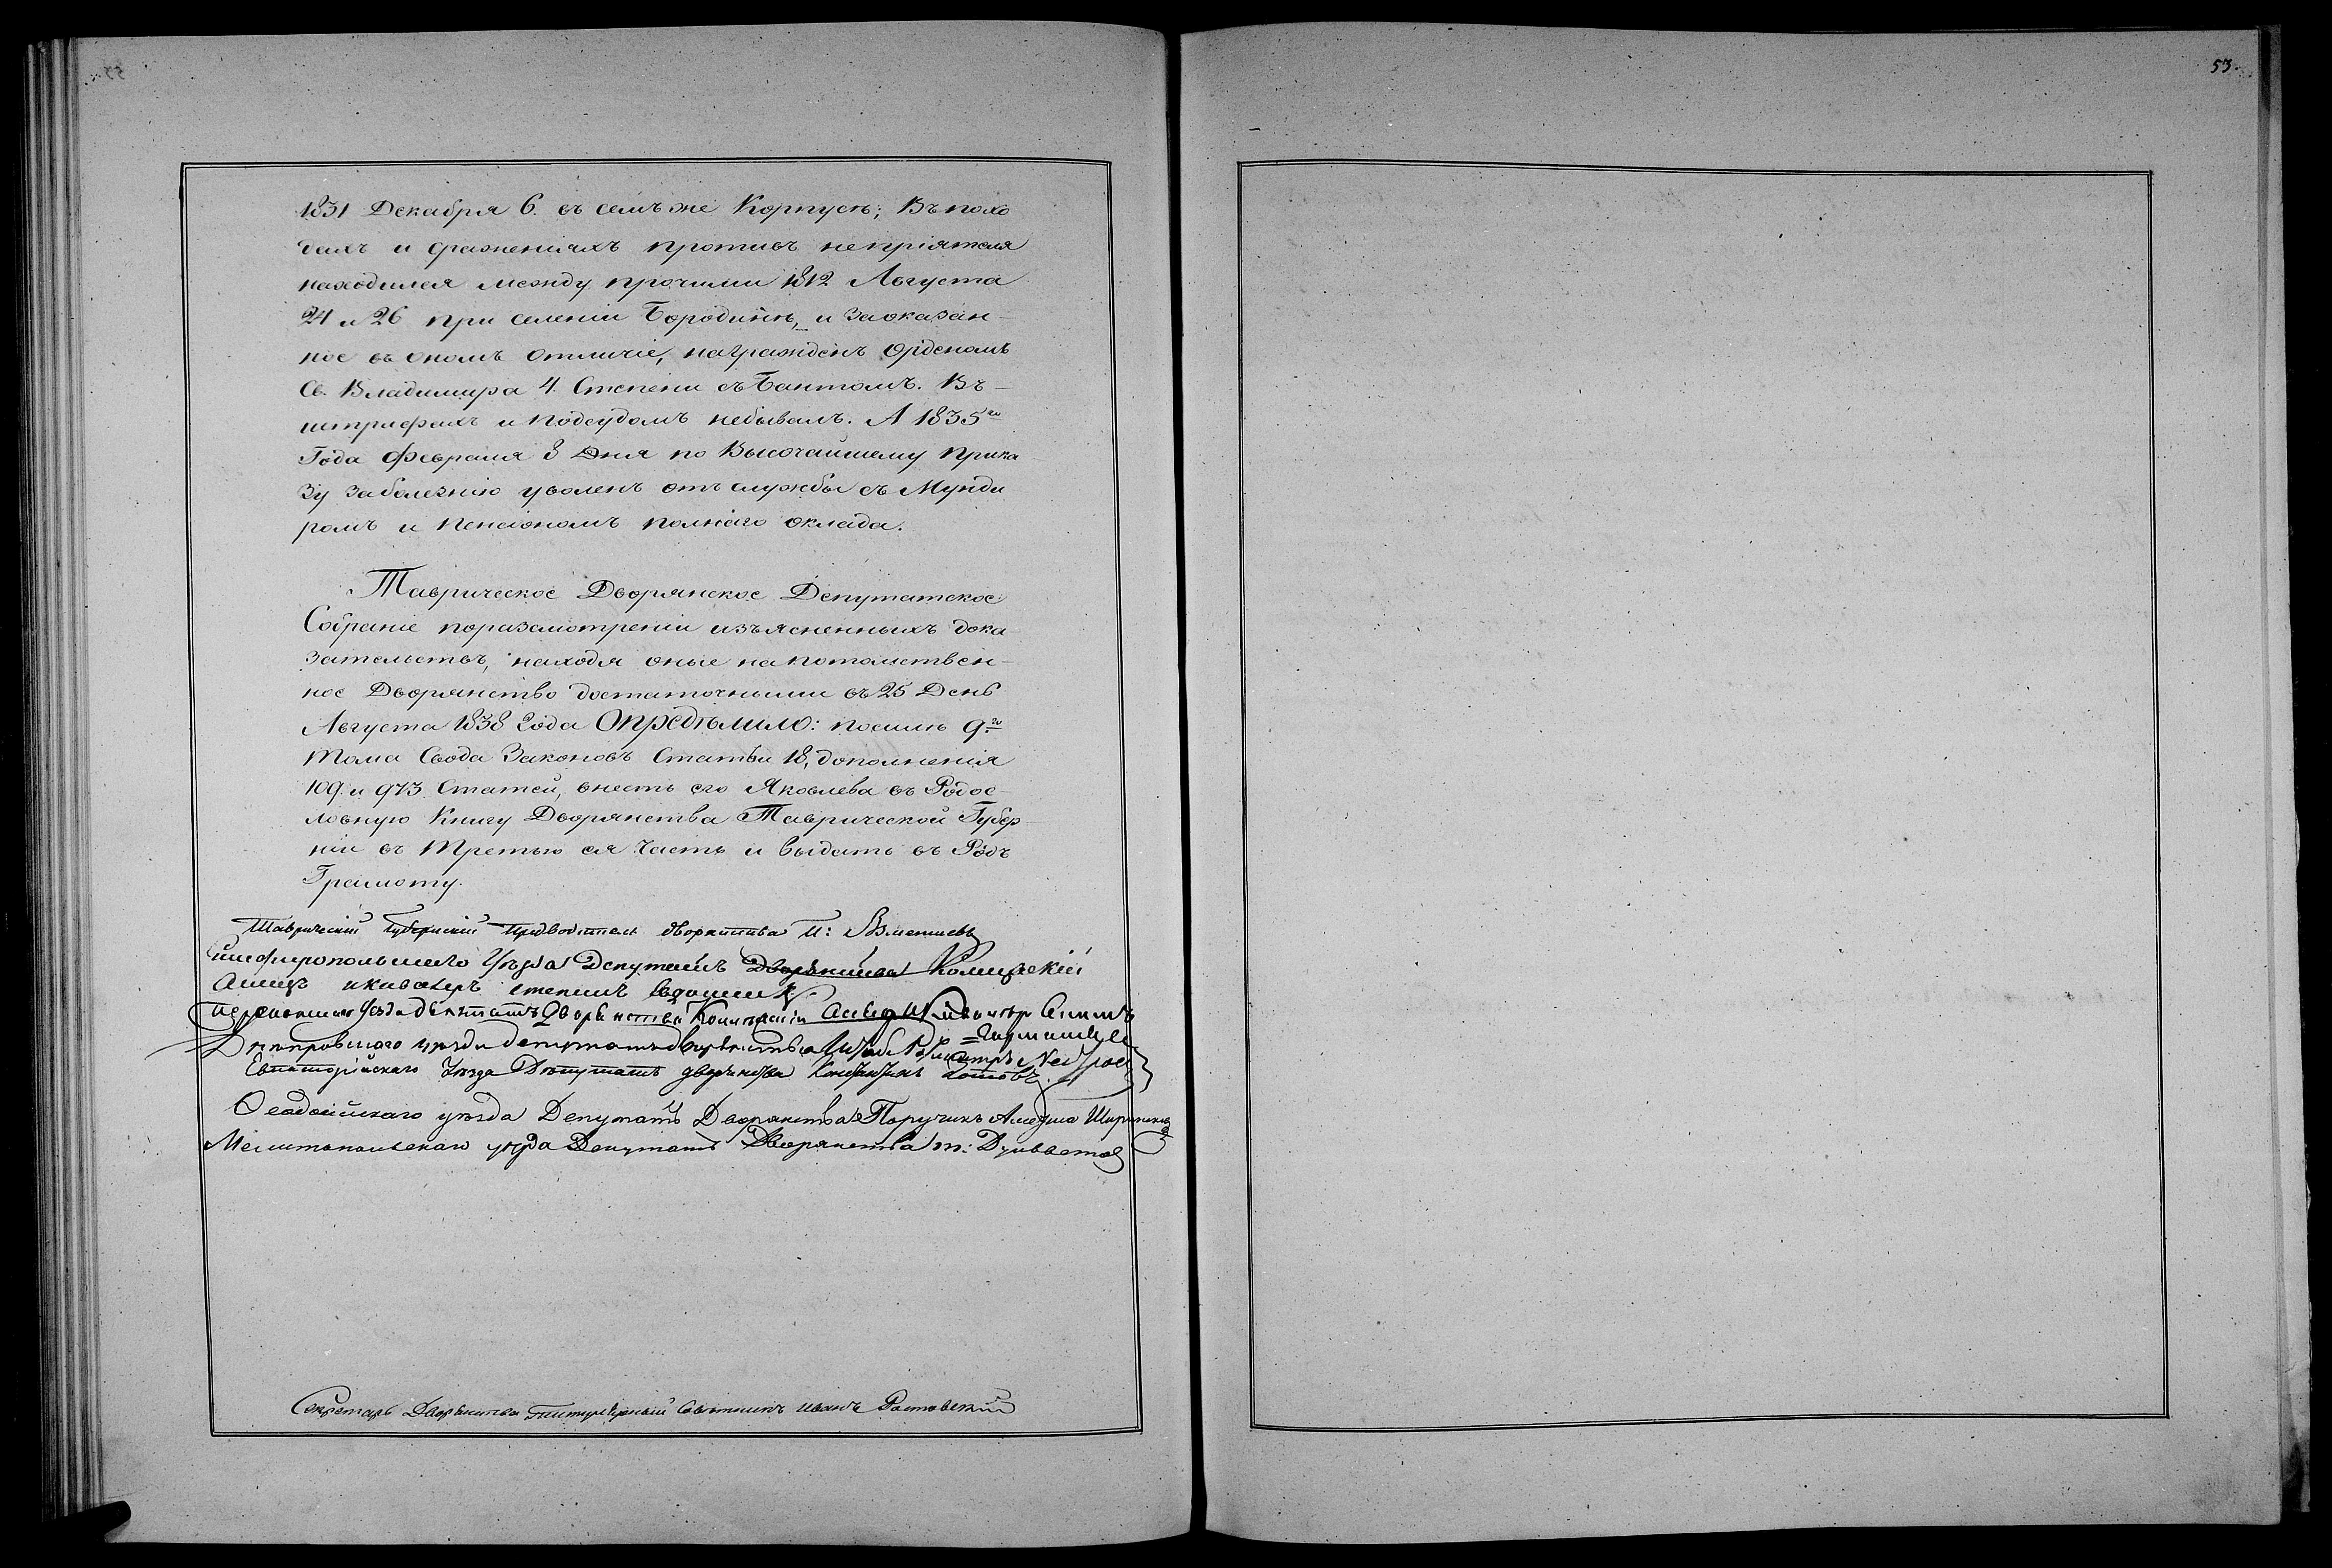 53.
1831 Декабря 6. въ семъ же Корпусѣ; Въ похо
дахъ и сраженіяхъ противъ непріятеля
находился между прочими 1812 Августа
24 и 26 при селеніи Бородинѣ, и за оказан-
ное въ ономъ отличіе, награжденъ Орденомъ
Св. Владимира 4. Степени съ Бантомъ. Въ-
штрафахъ и подсудомъ небывалъ. А 1835го
Года Февраля 8 Дня по Высочайшему прика
зу за болезнію уволенъ отъ службы съ Мунди
ромъ и пенсіономъ полнаго оклада.
Таврическое Дворянское Депутатское
Собраніе поразсмотреніи изъясненныхъ дока
зательствъ, находя оные на потомствен-
ное Дворянство достаточными въ 25 День
Августа 1838 Года Опредѣлило: посилѣ 9го
тома Свода Законовъ Статьи 18, дополненія
109. и 973 Статей, внесть его Яковлева въ Родос-
ловную Книгу Дворянства Таврической Губер-
ніи въ третью ея Часть и выдать въ Родъ
Грамоту.
Таврический Губернский Предводитель дворянства
Уѣзда Депутатъ Дворянства
уезда депутатъ Дворянства
Днепровскаго уѣзда депутатъ дворянства
Евпаторійскаго Уѣзда Депутатъ дворянства
Феодосійскаго уѣзда Депутатъ Дворянства Поручикъ
Мелитопольскаго уѣзда Депутатъ Дворянства
Секретарь Дворянства Титулярный Совѣтникъ Иванъ Ростовский